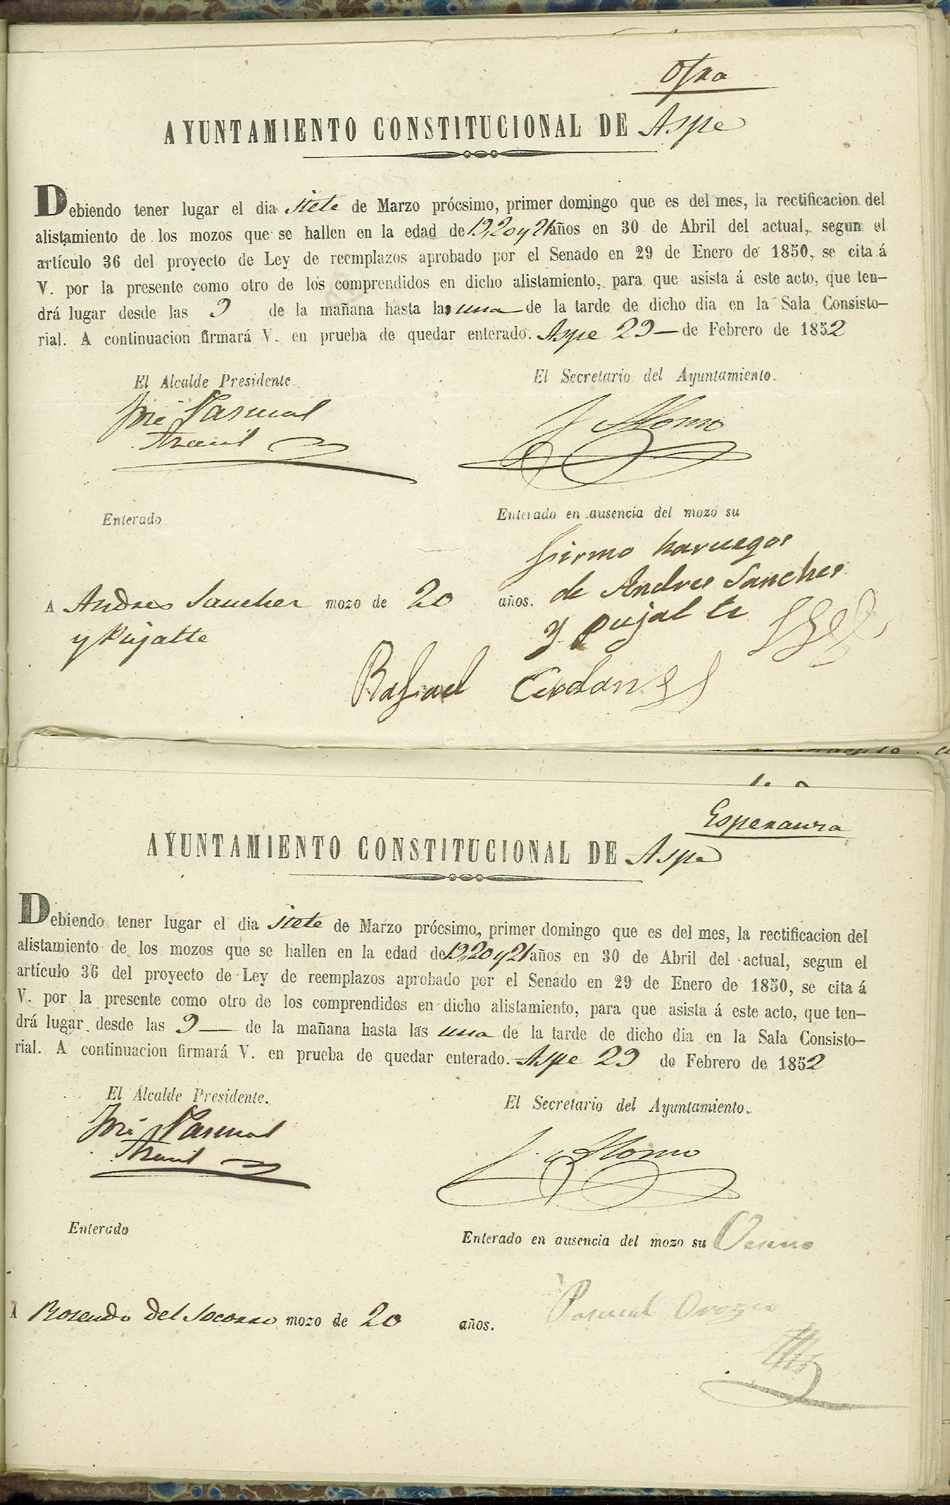 Otra
AYUNTAMIENTO CONSTITUCIONAL DE Aspe
Debiendo tener lugar el dia siete de Marzo prócsimo, primer domingo que es del mes, la rectificacion del
alistamiento de los mozos que se hallen en la edad de 19, 20 y 21 años en 30 de Abril del actual, segun el
artículo 36 del proyecto de Ley de reemplazos aprobado por el Senado en 29 de Enero de 1850, se cita á
V. por la presente como otro de los comprendidos en dicho alistamiento, para que asista á este acto, que ten-
drá lugar desde las 9 de la mañana hasta las una de la tarde de dicho dia en la Sala Consisto-
rial. A continuacion firmará V. en prueba de quedar enterado. Aspe 29 de Febrero de 1852
El Alcalde Presidente.
El Secretario del Ayuntamiento.
José Pascual
J. Alonso
Enterado
Enterado en ausencia del mozo su
firmo haruegos
de Andres Sanches
y pujalte
A Andres Sancher mozo de 20 años.
y Pujalte
Rafael Cerdan
Esperanza
AYUNTAMIENTO CONSTITUCIONAL DE Aspe
Debiendo tener lugar el dia siete de Marzo prócsimo, primer domingo que es del mes, la rectificacion del
alistamiento de los mozos que se hallen en la edad de 19, 20 y 21 años en 30 de Abril del actual, segun el
artículo 36 del proyecto de Ley de reemplazos aprobado por el Senado en 29 de Enero de 1850, se cita á
V. por la presente como otro de los comprendidos en dicho alistamiento, para que asista á este acto, que ten-
drá lugar desde las 9 de la mañana hasta las una de la tarde de dicho dia en la Sala Consisto-
rial. A continuacion firmará V. en prueba de quedar enterado. Aspe 29 de Febrero de 1852
El Alcalde Presidente.
El Secretario del Ayuntamiento.
José Pascual
J. Alonso
Enterado
Enterado en ausencia del mozo su Vecino
Pascual Orozco
A Rosendo del Socorro mozo de 20 años.